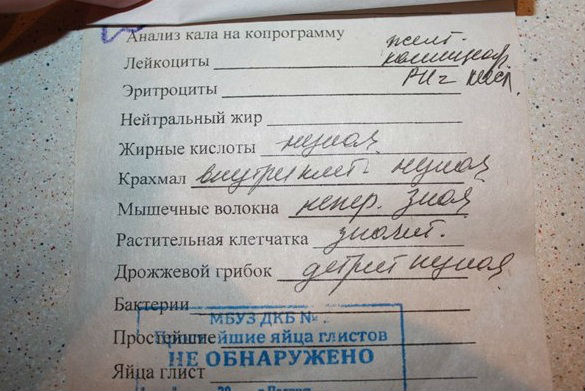 Анализ кала на копрограмму желт.
Лейкоциты кашицеоб.
Эритроциты РН= кисл.
Нейтральный жир
Жирные кислоты
Крахмал внутриклет.
Мышечные волокна непер.
Растительная клетчатка значит.
Дрожжевой грибок детрит
Бактерии
МБУЗ ДКБ №
Простейшие яйца глистов
НЕ ОБНАРУЖЕНО
Яйца глист